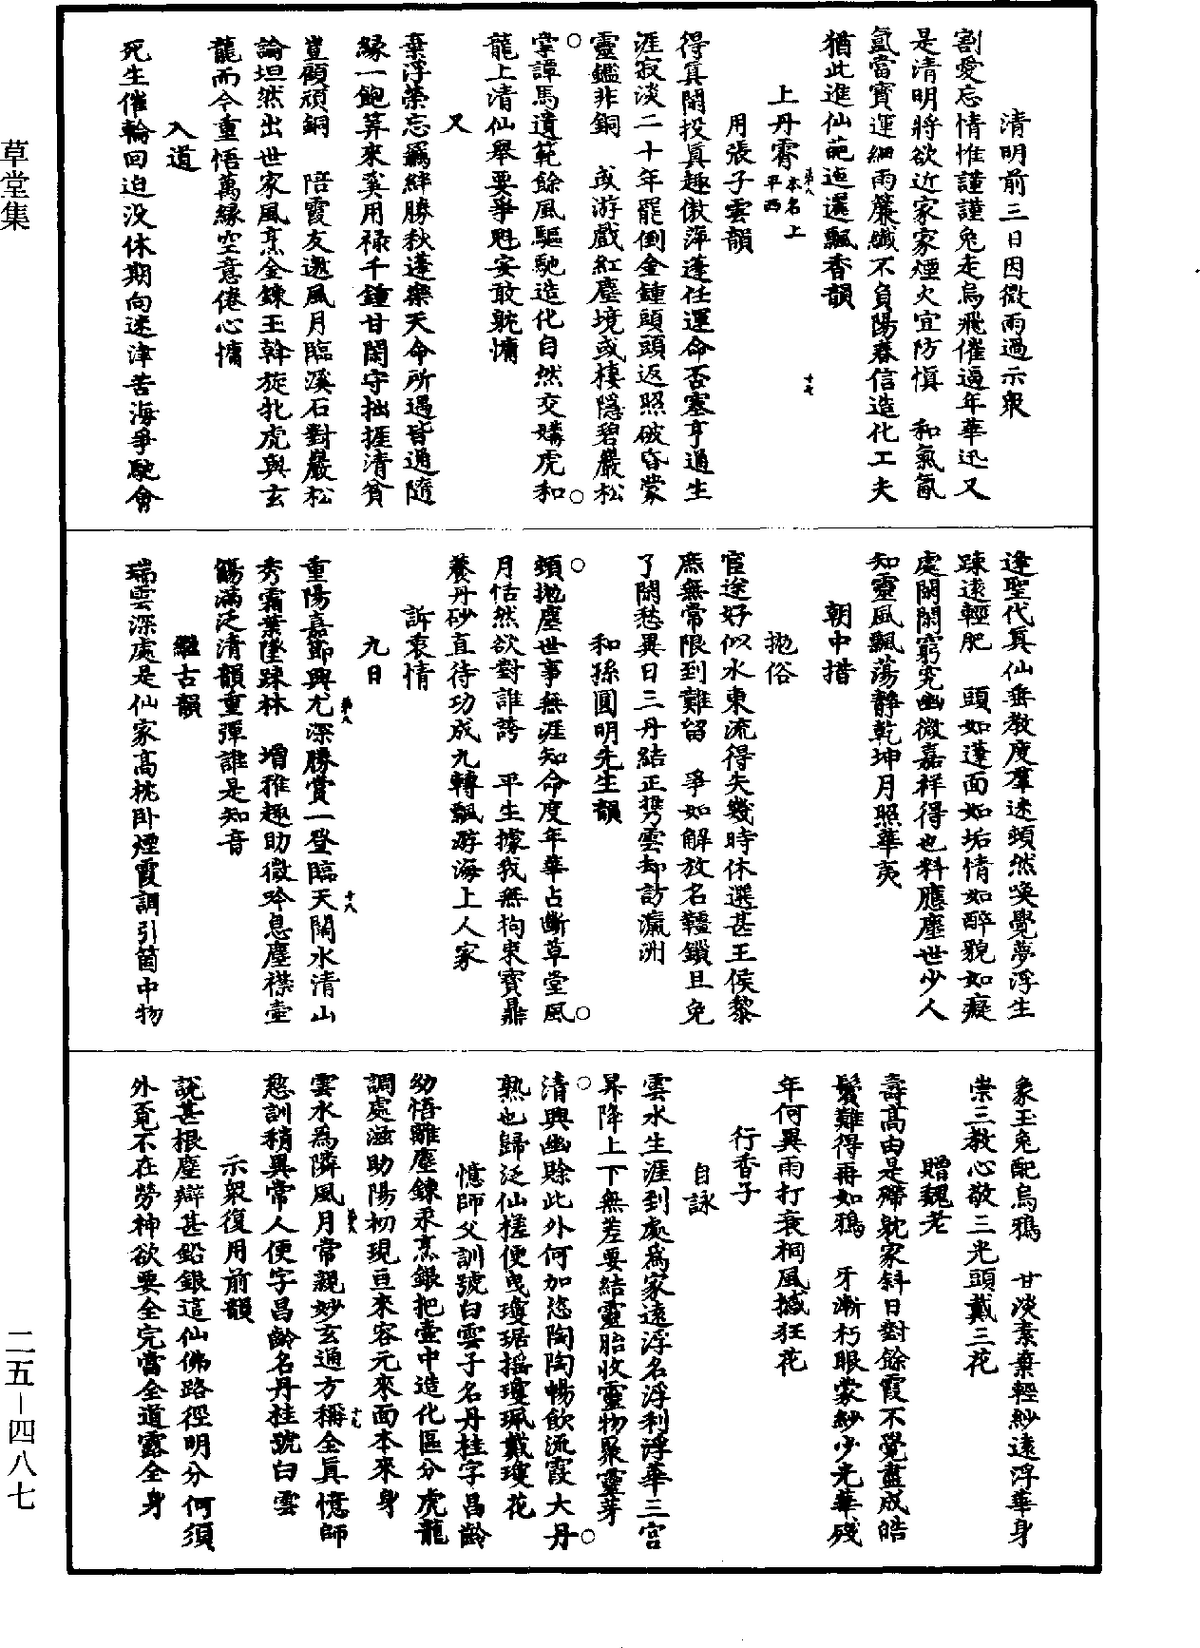 草堂集
清明前三日因微雨過示衆
割愛忘情惟謹謹兔走烏飛催逼年華迅又
是清明將欲近家家煙火宜防愼　和氣氤
氳當寶運細雨簾纖不負陽春信造化工夫
猶此進仙葩迤邐飄香韻
上丹霄本名上平西
用張子雲韻
得眞閑投眞趣傲萍蓬任運命否塞亨通生
涯寂淡二十年罷倒金鍾頭頭返照破昏蒙
靈鑑非銅　或游戲紅塵境或棲隱碧巖松
掌譚馬遺範餘風驅馳造化自然交媾虎和
龍上清仙舉要爭魁安敢躭慵
又
棄浮榮忘羈絆勝秋蓬樂天命所遇皆通隨
緣一飽算來奚用祿千鍾甘閑守拙捱清貧
豈顧頑銅　陪霞友邀風月臨溪石對巖松
論坦然出世家風烹金鍊玉斡旋牝虎與玄
龍而今重悟萬緣空意倦心慵
入道
死生催輪回迫沒休期向迷津苦海爭馳會
逢聖代眞仙垂教度羣迷頓然喚覺夢浮生
踈遠輕肥　頭如蓬面如垢情如醉貌如癡
處閑閑窮究幽微嘉祥得也料應塵世少人
知靈風飄蕩靜乾坤月照華夷
朝中措
拋俗
宦途好似水東流得失幾時休選甚王侯黎
庶無常限到難留　爭如解放名韁鎖且免
了閑愁異日三丹結正携雲却訪瀛洲
和孫圓明先生韻
頓拋塵世事無涯知命度年華占斷草堂風
月恬然欲對誰誇　平生據我無拘束寶鼎
養丹砂直待功成九轉飄游海上人家
訴衷情
九日
重陽嘉節興尤深勝賞一登臨天闊水清山
秀霜葉墜踈林　增雅趣助微吟息塵襟壺
觴滿泛清韻重彈誰是知音
繼古韻
瑞雲深處是仙家高枕臥煙霞調引箇中物
象玉兔配烏鴉　甘淡素棄輕紗遠浮華身
崇三教心敬三光頭戴三花
贈魏老
壽高由是殢躭家斜日對餘霞不覺盡成皓
鬢難得再如鴉　牙漸朽眼蒙紗少光華殘
年何異雨打衰桐風撼狂花
行香子
自詠
雲水生涯到處爲家遠浮名浮利浮華三宮
昇降上下無差要結靈胎收靈物聚靈芽
清興幽賒此外何加恣陶陶暢飲流霞大丹
熟也歸泛仙槎便曳瓊琚搖瓊珮戴瓊花
憶師父訓號白雲子名丹桂字昌齡
幼悟離塵鍊汞烹銀把壺中造化區分虎龍
調處滋助陽初現亘來容元來面本來身
雲水爲隣風月常親妙玄通方稱全眞憶師
慈訓稍異常人便字昌齡名丹桂號白雲
示衆復用前韻
說甚根塵辯甚鉛銀這仙佛路徑明分何須
外覓不在勞神欲要全完當全道露全身
二五-四八七